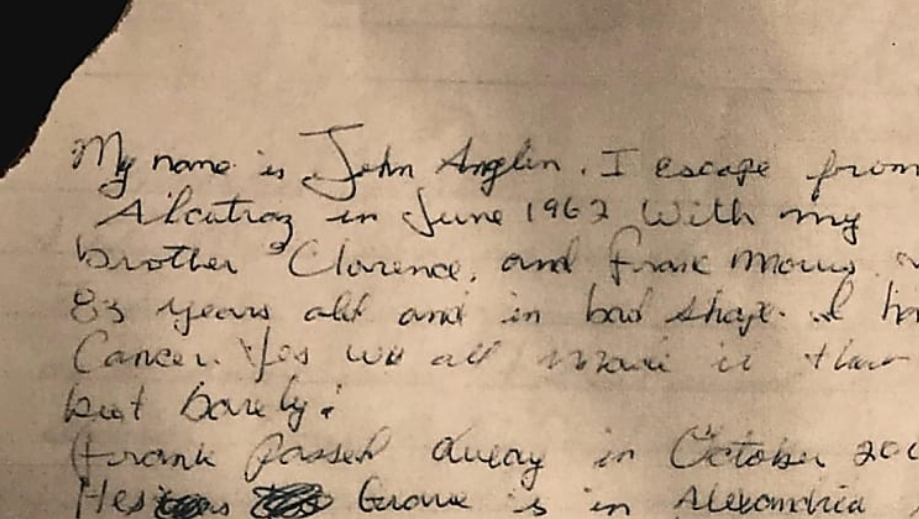 My name is John Anglin. I escape from
Alcatraz in June 1962 With my
brother Clarence, and Frank Morris.
83 years old and in bad shape. I
Cancer. Yes we all made it
but barely!
Frank passed away in October
Grave is in Alexandria